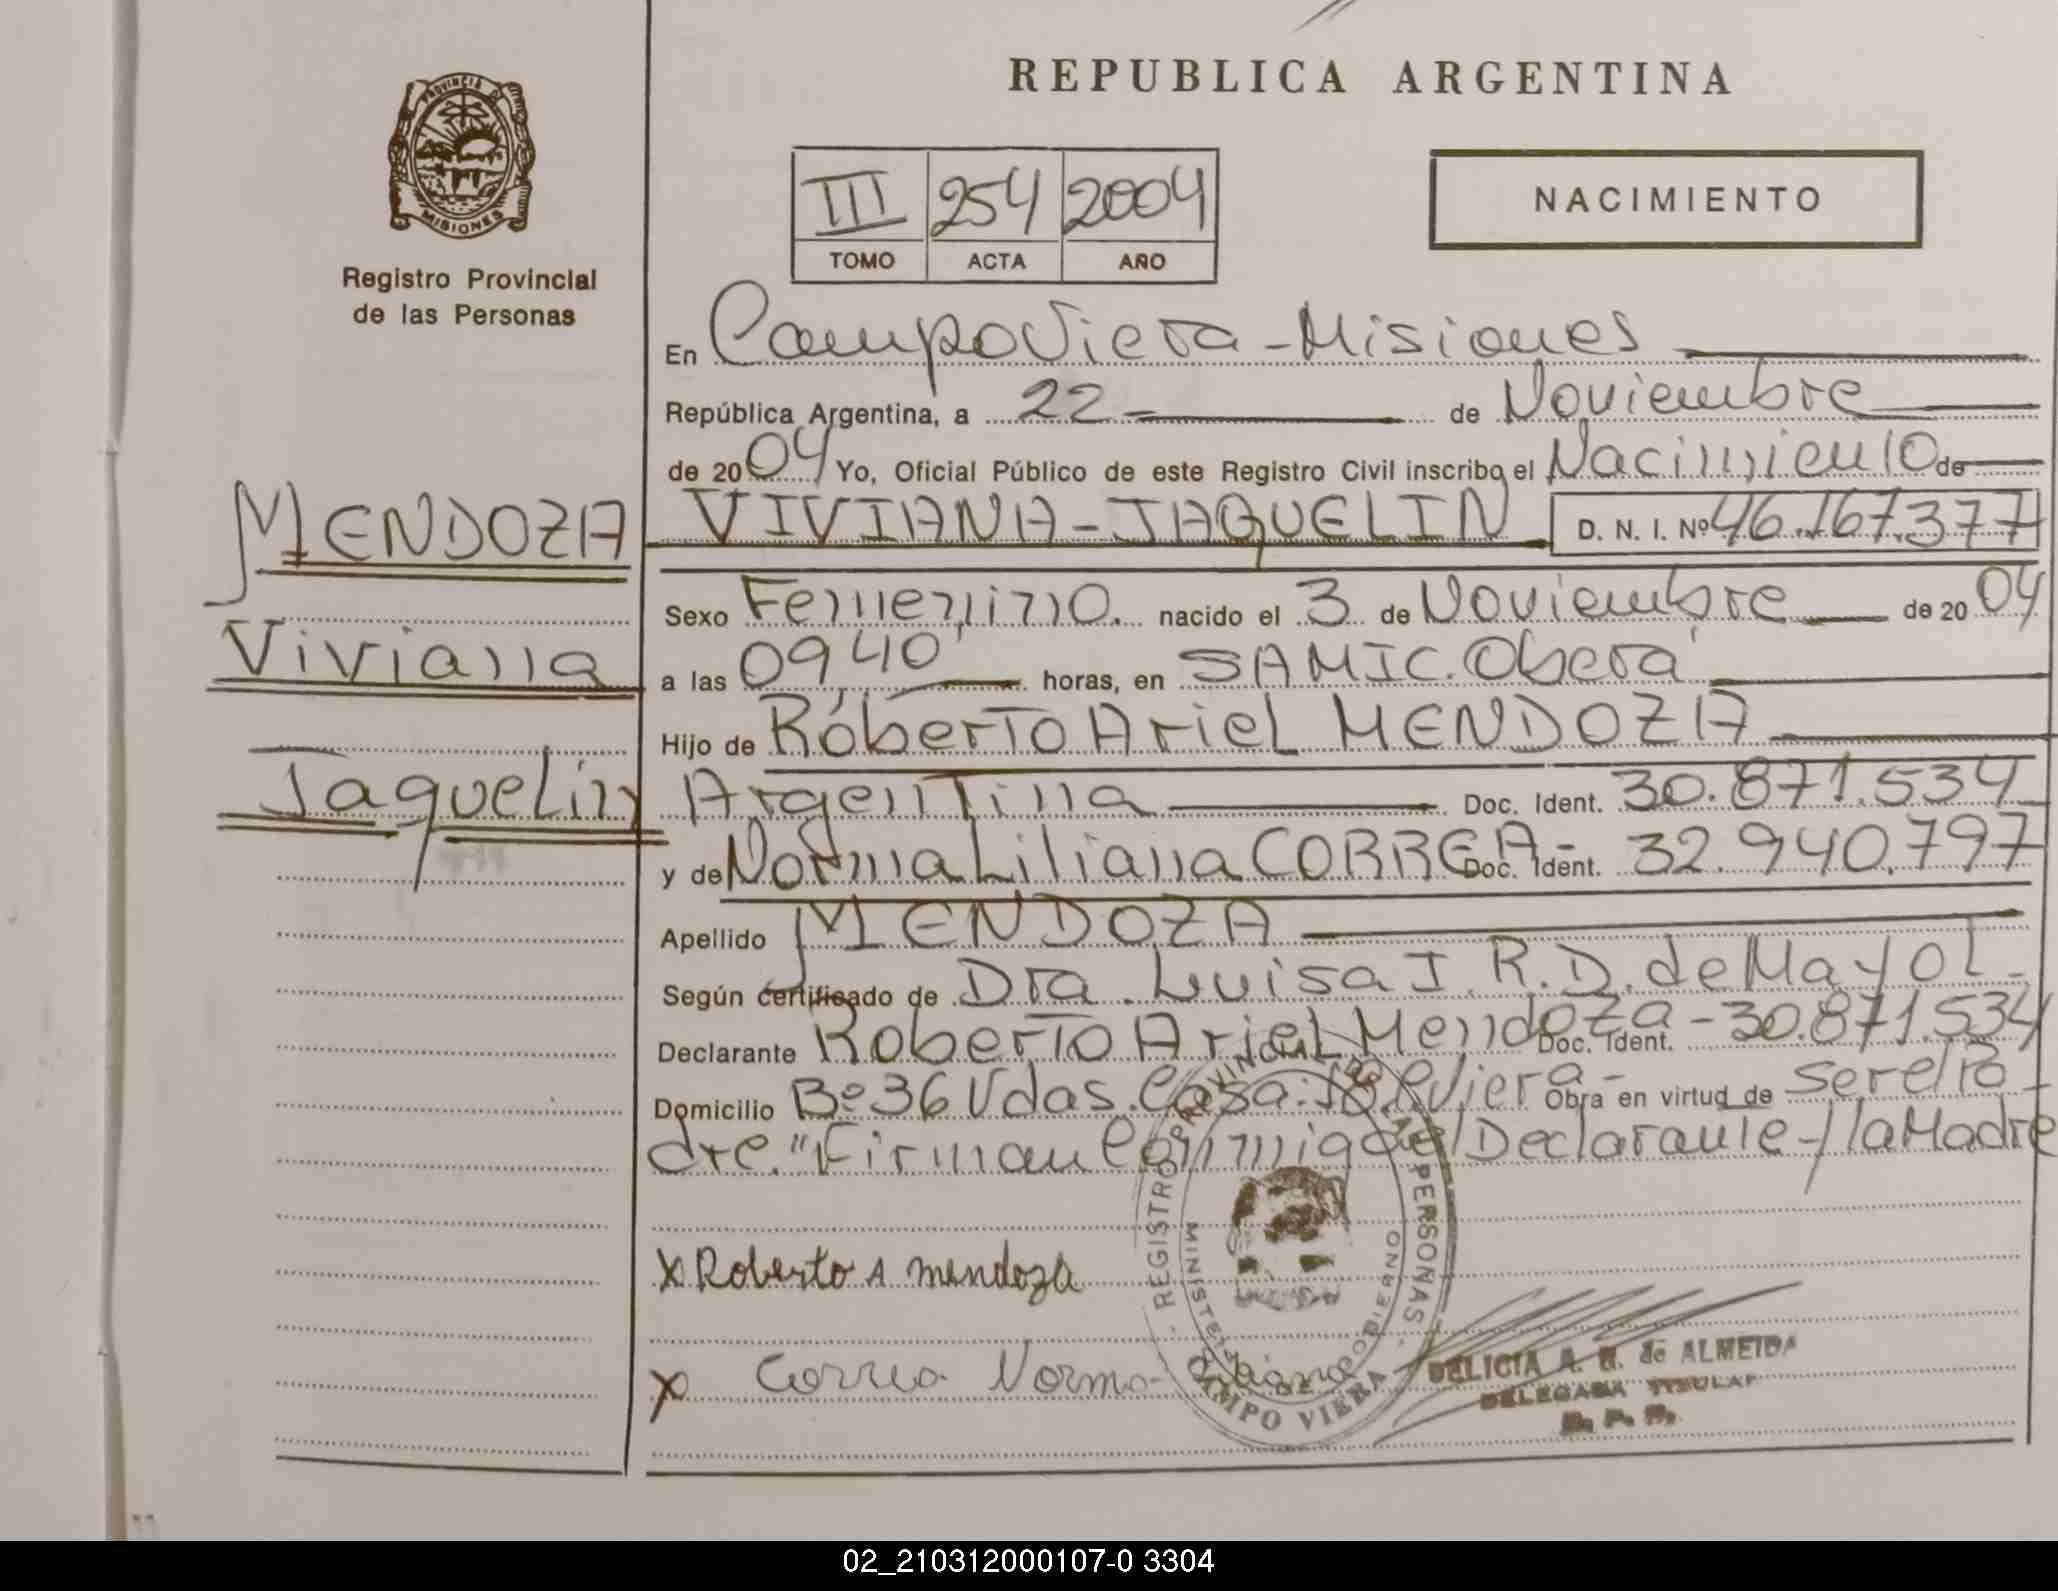 REPUBLICA ARGENTINA
PROVINCIA DE
MISIONES
Registro Provincial
de las Personas
III 254 2004
TOMO ACTA AÑO
NACIMIENTO
En Campo Viera - Misiones
República Argentina, a 22 de Noviembre
de 2004 Yo, Oficial Público de este Registro Civil inscribo el Nacimiento de
MENDOZA
VIVIANA - JAQUELIN D. N. I. Nº 46.167.377
Sexo Femenino. nacido el 3 de Noviembre de 2004
Viviana
a las 0940' horas, en SAMIC. Oberá
Hijo de Róberto Ariel MENDOZA
Jaquelin
Argentina Doc. Ident. 30.871.534
y de Norma Liliana CORREA - Doc. Ident. 32.940.797
Apellido MENDOZA
Según certificado de Dra. Luisa I. R. D. de Mayol -
Declarante Roberto Ariel Mendoza - Doc. Ident. 30.871.534
Domicilio Bº 36 Vdas. Casa: 18 C/Viera - Obra en virtud de ser el Pa-
dre." Firman Conmigo el Declarante - / la Madre
X Roberto A mendoza
X Correa Norma Liliana
REGISTRO PROVINCIAL DE LAS PERSONAS
MINISTERIO DE GOBIERNO
CAMPO VIERA
DELICIA A. de ALMEIDA
DELEGADA TITULAR
R. P. P.
02_210312000107-0 3304